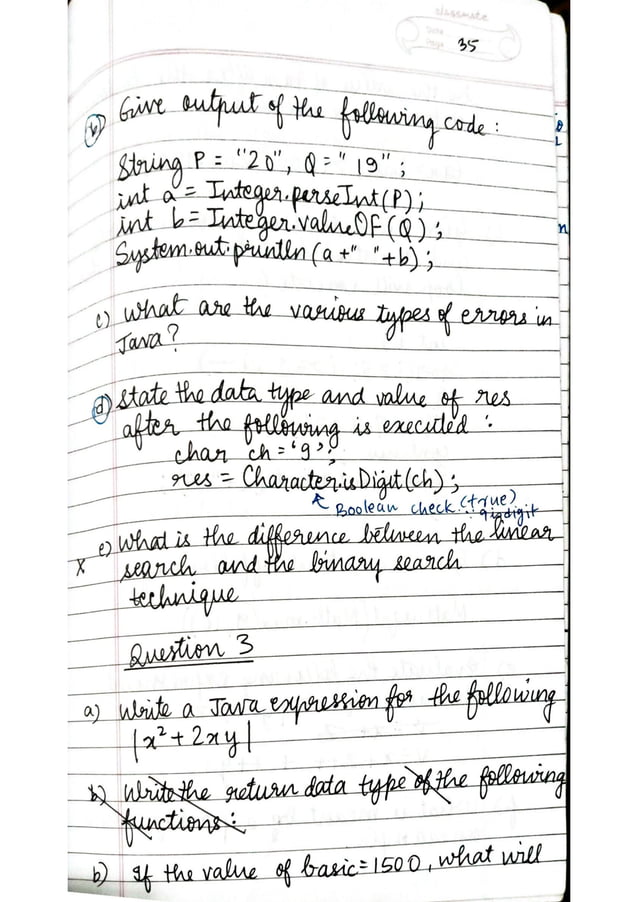 classmate
Date
Page 35
(b) Give output of the following code :
String P = "20", Q = " 19" ;
int a = Integer.parseInt(P) ;
int b = Integer.valueOF(Q) ;
System.out.println(a +" "+b) ;
c) What are the various types of errors in
Java?
(d) State the data type and value of res
after the following is executed :
char ch = '9' ;
res = Character.isDigit(ch) ;
Boolean check. (true)
9 is digit
e) What is the difference between the linear
X search and the binary search
technique
Question 3
a) Write a Java expression for the following
|x² + 2xy|
b) Write the return data type of the following
functions :
b) If the value of basic = 1500, what will